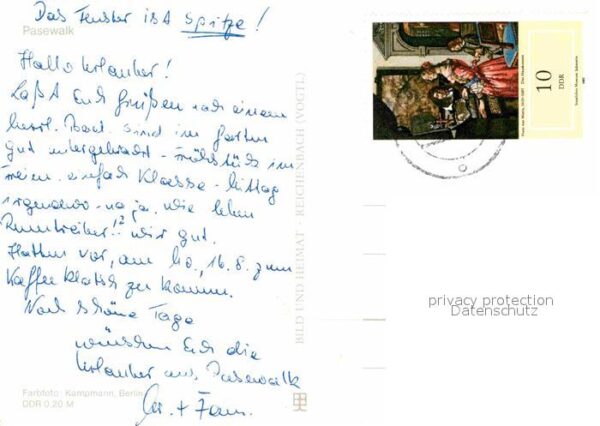 Das Fenster ist Spitze!
Pasewalk
Hallo Urlauber!
Laßt Euch grüßen nach einem
herrl. Bad. Sind im Garten
gut untergebracht - Frühstück im
Freien. einfach Klasse - Mittag
irgendwo - na ja, wie leben
Rumtreiber!? Wir gut.
Hatten vor, am Mo., 16.8. zum
Kaffeeklatsch zu kommen.
Noch schöne Tage
wünschen Euch die
Urlauber aus Pasewalk
+ Fam.
Farbfoto: Kampmann, Berlin
DDR 0,20 M
BILD UND HEIMAT · REICHENBACH (VOGTL)
10
DDR
Staatliches Museum Schwerin
1982
privacy protection
Datenschutz